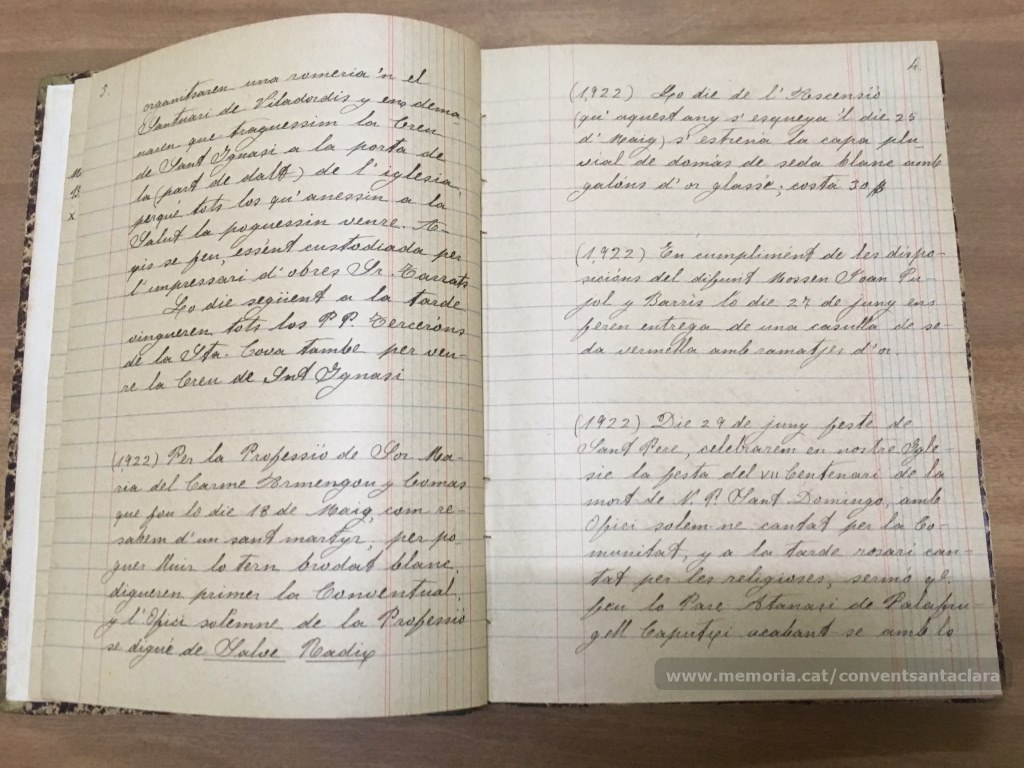 3.
organitsaren una romeria 'n el
Santuari de Viladordis y ens dema-
naren que traguessim la Creu
de Sant Ignasi a la porta de
la (part de dalt) de l'iglesia,
perqué tots los qu'anessin a la
Salut la poguessin veure. A-
xis se feu, essent custodiada per
l'empressari d'obres Sr. Tarrats
Lo die següent a la tarde
vingueren tots los P P. Tercerons
de la Sta. Cova tambe per veu-
re la Creu de Snt Ignasi
N
B
x
(1922) Per la Professió de Sor Ma-
ria del Carme Armengou y Comas
que fou lo die 18 de Maig, com re-
sabem d'un sant martyr, per po-
guer lluir lo tern brodat blanc,
digueren primer la Conventual,
y l'Ofici solemne de la Professió
se digué de Salve Radix
4.
(1922) Lo die de l'Ascensió
(qu' aquest any s'esqueya 'l die 25
d' Maig) s'estrená la capa plu-
vial de domás de seda blanc amb
galóns d'or glassé; costá 30
(1922) En cumplimént de les dispo-
sicións del difunt Mossen Joan Pu-
jol y Barrés lo die 27 de juny ens
feren entrega de una casulla de se-
da vermella amb ramatjes d'or
(1922) Die 29 de juny feste de
Sant Pere, celebrarem en nostre Igle-
sie la festa del VII Centenari de la
mort de N. P. Sant Domingo, amb
Ofici solem-ne cantat per la Co-
munitat, y a la tarde rosari can-
tat per les religioses, sermó q'l
feu lo Pare Atanasi de Palafru-
gell Caputxi acabant-se amb lo
www.memoria.cat/conventsantaclara